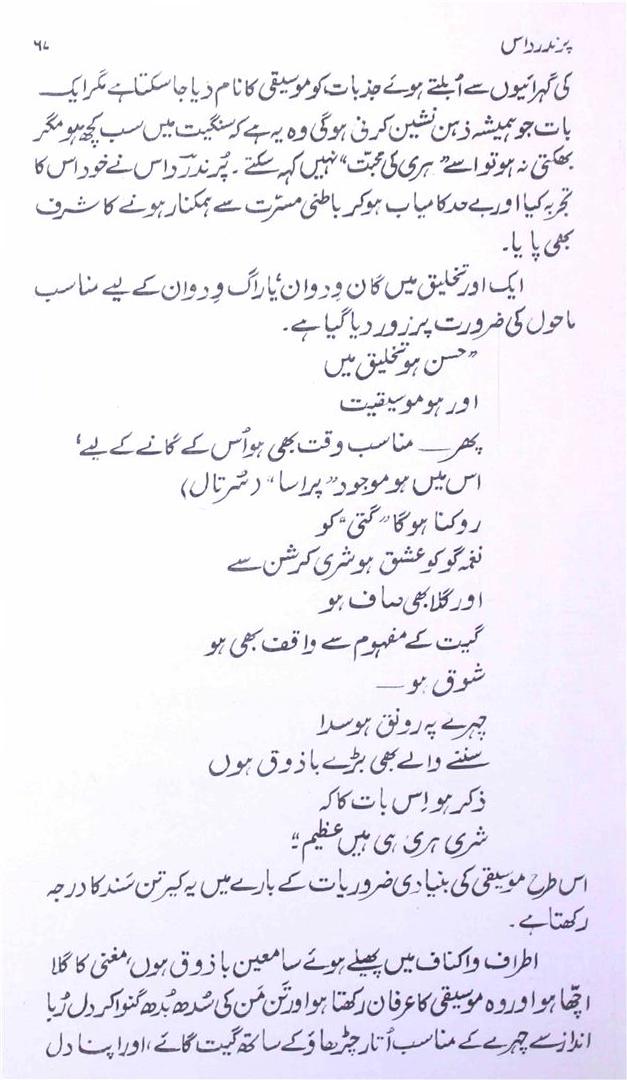 پرندر داس ۶۷
کی گہرائیوں سے اُبلتے ہوئے جذبات کو موسیقی کا نام دیا جا سکتا ہے مگر ایک
بات جو ہمیشہ ذہن نشین کرنی ہوگی وہ یہ ہے کہ سنگیت میں سب کچھ ہو مگر
بھکتی نہ ہو تو اسے ”ہری کی محبّت“ نہیں کہہ سکتے ۔ پُرندرؔ داس نے خود اس کا
تجربہ کیا اور بے حد کامیاب ہوکر باطنی مسرّت سے ہمکنار ہونے کا شرف
بھی پایا۔
ایک اور تخلیق میں گان وِدوان‘ یا راگ وِدوان کے لیے مناسب
ماحول کی ضرورت پر زور دیا گیا ہے۔
”حسن ہو تخلیق میں
اور ہو موسیقیت
پھر — مناسب وقت بھی ہو اُس کے گانے کے لیے‘
اس میں ہو موجود ”پراسا“ (سُر تال)
روکنا ہوگا ”گتی“ کو
نغمہ گو کو عشق ہو شری کرشن سے
اور گلا بھی صاف ہو
گیت کے مفہوم سے واقف بھی ہو
شوق ہو —
چہرے پہ رونق ہو سدا
سننے والے بھی بڑے باذوق ہوں
ذکر ہو اِس بات کا کہ
شری ہری ہی ہیں عظیم“
اس طرح موسیقی کی بنیادی ضروریات کے بارے میں یہ کیرتن سَند کا درجہ
رکھتا ہے ۔
اطراف و اکناف میں پھیلے ہوئے سامعین باذوق ہوں‘ مغنی کا گلا
اچھّا ہو اور وہ موسیقی کا عرفان رکھتا ہو اور تَن مَن کی سُدھ بُدھ گنوا کر دل رُبا
انداز سے چہرے کے مناسب اُتار چڑھاؤ کے ساتھ گیت گائے ، اور اپنا دل